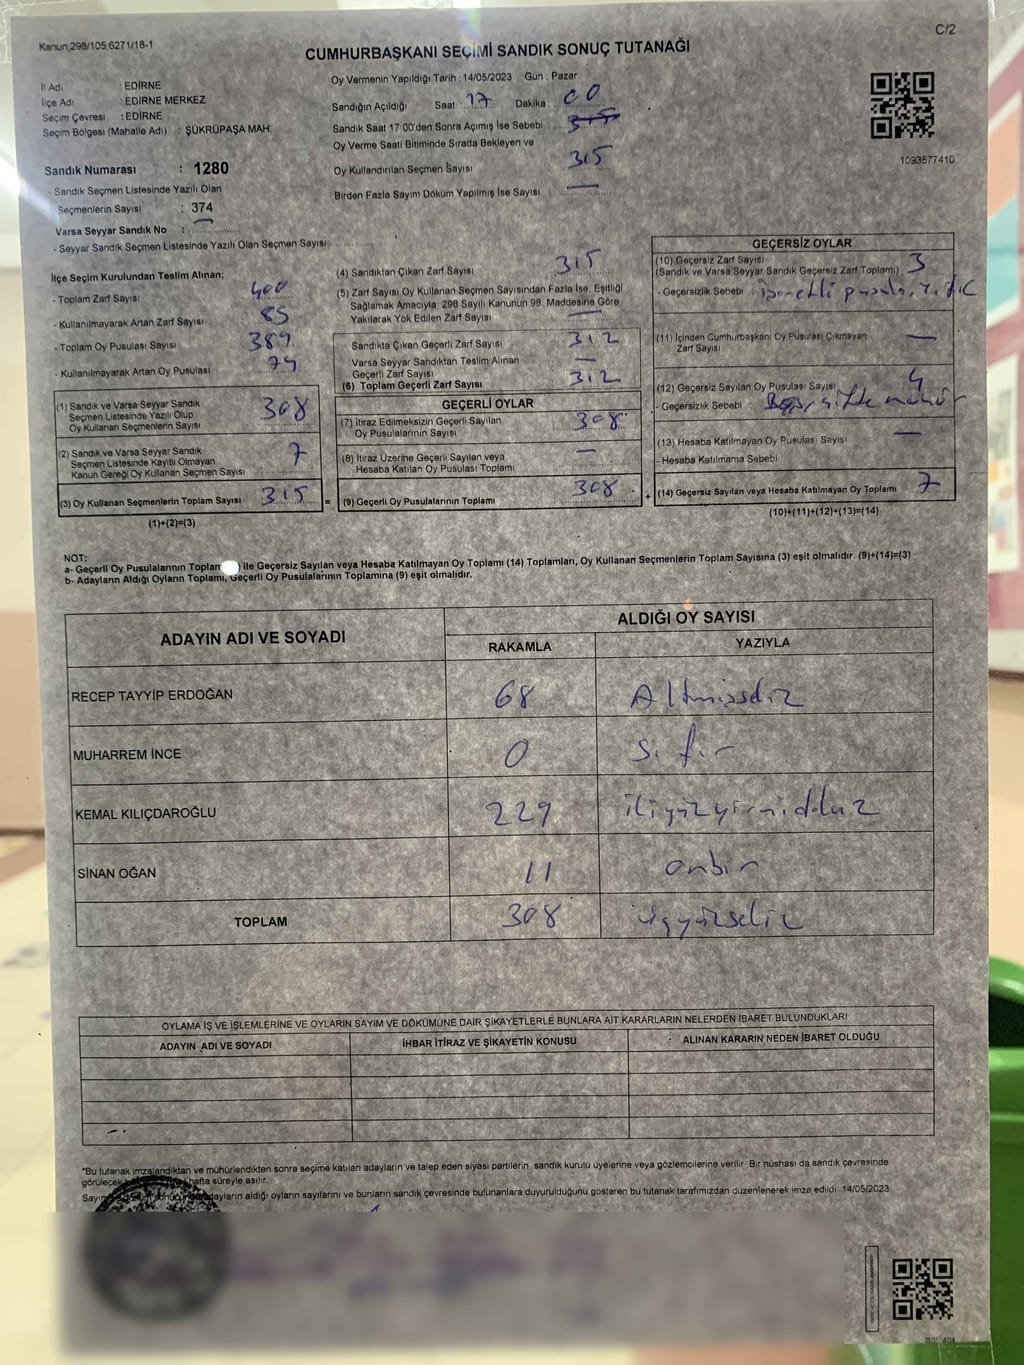 Kanun:298/105;6271/18-1
C/2
CUMHURBAŞKANI SEÇİMİ SANDIK SONUÇ TUTANAĞI
İl Adı : EDİRNE
İlçe Adı : EDİRNE MERKEZ
Seçim Çevresi : EDİRNE
Seçim Bölgesi (Mahalle Adı) : ŞÜKRÜPAŞA MAH.
Sandık Numarası : 1280
- Sandık Seçmen Listesinde Yazılı Olan
Seçmenlerin Sayısı : 374
Varsa Seyyar Sandık No :
- Seyyar Sandık Seçmen Listesinde Yazılı Olan Seçmen Sayısı
Oy Vermenin Yapıldığı Tarih : 14/05/2023 Gün : Pazar
Sandığın Açıldığı Saat : 17 Dakika : 00
Sandık Saat 17:00'den Sonra Açımış İse Sebebi
Oy Verme Saati Bitiminde Sırada Bekleyen ve
Oy Kullandırılan Seçmen Sayısı 315
Birden Fazla Sayım Döküm Yapılmış İse Sayısı —
1093577410
İlçe Seçim Kurulundan Teslim Alınan;
- Toplam Zarf Sayısı 400
- Kullanılmayarak Artan Zarf Sayısı 85
- Toplam Oy Pusulası Sayısı 389
- Kullanılmayarak Artan Oy Pusulası 74
(1) Sandık ve Varsa Seyyar Sandık
Seçmen Listesinde Yazılı Olup
Oy Kullanan Seçmenlerin Sayısı 308
(2) Sandık ve Varsa Seyyar Sandık
Seçmen Listesinde Kayıtlı Olmayan
Kanun Gereği Oy Kullanan Seçmen Sayısı 7
(3) Oy Kullanan Seçmenlerin Toplam Sayısı 315 =
(1)+(2)=(3)
(4) Sandıktan Çıkan Zarf Sayısı 315
(5) Zarf Sayısı Oy Kullanan Seçmen Sayısından Fazla İse, Eşitliği
Sağlamak Amacıyla, 298 Sayılı Kanunun 98. Maddesine Göre
Yakılarak Yok Edilen Zarf Sayısı —
Sandıkta Çıkan Geçerli Zarf Sayısı 312
Varsa Seyyar Sandıktan Teslim Alınan
Geçerli Zarf Sayısı —
(6) Toplam Geçerli Zarf Sayısı 312
GEÇERLİ OYLAR
(7) İtiraz Edilmeksizin Geçerli Sayılan
Oy Pusulalarının Sayısı 308
(8) İtiraz Üzerine Geçerli Sayılan veya
Hesaba Katılan Oy Pusulası Toplamı —
(9) Geçerli Oy Pusulalarının Toplamı 308 +
GEÇERSİZ OYLAR
(10) Geçersiz Zarf Sayısı
(Sandık ve Varsa Seyyar Sandık Geçersiz Zarf Toplamı) 3
- Geçersizlik Sebebi : işaretli pusula,
(11) İçinden Cumhurbaşkanı Oy Pusulası Çıkmayan
Zarf Sayısı —
(12) Geçersiz Sayılan Oy Pusulası Sayısı 4
- Geçersizlik Sebebi çifte mühür
(13) Hesaba Katılmayan Oy Pusulası Sayısı —
- Hesaba Katılmama Sebebi
(14) Geçersiz Sayılan veya Hesaba Katılmayan Oy Toplamı 7
(10)+(11)+(12)+(13)=(14)
NOT:
a- Geçerli Oy Pusulalarının Toplam İle Geçersiz Sayılan veya Hesaba Katılmayan Oy Toplamı (14) Toplamları, Oy Kullanan Seçmenlerin Toplam Sayısına (3) eşit olmalıdır. (9)+(14)=(3)
b- Adayların Aldığı Oyların Toplamı, Geçerli Oy Pusulalarının Toplamına (9) eşit olmalıdır.
ADAYIN ADI VE SOYADI
ALDIĞI OY SAYISI
RAKAMLA YAZIYLA
RECEP TAYYİP ERDOĞAN 68 Altmışsekiz
MUHARREM İNCE 0 Sıfır
KEMAL KILIÇDAROĞLU 229 ikiyüzyirmidokuz
SİNAN OĞAN 11 onbir
TOPLAM 308 üçyüzsekiz
OYLAMA İŞ VE İŞLEMLERİNE VE OYLARIN SAYIM VE DÖKÜMÜNE DAİR ŞİKAYETLERLE BUNLARA AİT KARARLARIN NELERDEN İBARET BULUNDUKLARI
ADAYIN ADI VE SOYADI İHBAR İTİRAZ VE ŞİKAYETİN KONUSU ALINAN KARARIN NEDEN İBARET OLDUĞU
*Bu tutanak imzalandıktan ve mühürlendikten sonra seçime katılan adayların ve talep eden siyasi partilerin sandık kurulu üyelerine veya gözlemcilerine verilir. Bir nüshası da sandık çevresinde
görülecek hafta süreyle asılır.
Sayım adayların aldığı oyların sayılarını ve bunların sandık çevresinde bulunanlara duyurulduğunu gösteren bu tutanak tarafımızdan düzenlenerek imza edildi. 14/05/2023